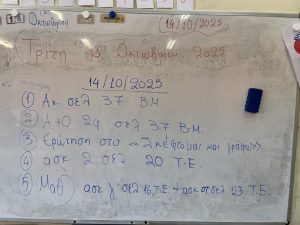 Οκτωβρίου
(14/10/2025)
Τρίτη Οκτωβρίου 2025
14/10/2025
① Αν. σελ 37 Β.Μ
② Α+Ο 2φ. σελ 37 Β.Μ.
③ Ερώτηση στο «Σκέφτομαι και γράφω».
④ ασκ 2 σελ 20 Τ.Ε.
⑤ Μαθ ασκ γ σελ 16 Τ.Ε. + ασκ στ σελ 23 Τ.Ε.